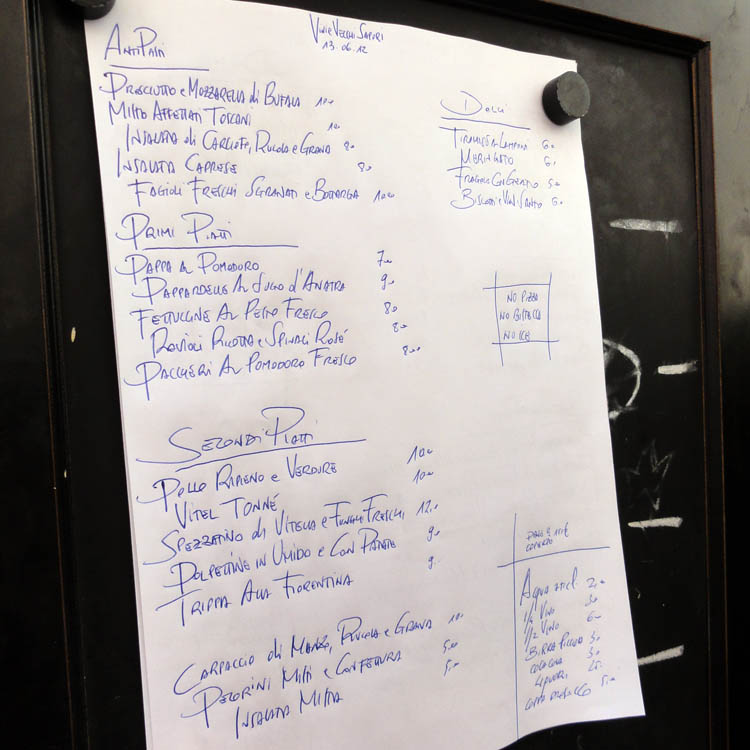 Vini e Vecchi Sapori
13.06.12
Antipasti
Prosciutto e Mozzarella di Bufala 10.00
Misto Affettati Toscani 10.
Insalata di Carciofi, Rucola e Grana 8.
Insalata Caprese 8.
Fagioli Freschi Sgranati e Bottarga 10.00
Primi Piatti
Pappa al Pomodoro 7.00
Pappardelle Al Sugo d'Anatra 9.
Fettuccine Al Pesto Fresco 8.
Ravioli Ricotta e Spinaci Rosé 8.
Paccheri Al Pomodoro Fresco 8.00
Secondi Piatti
Pollo Ripieno e Verdure 10.
Vitel Tonné 10.
Spezzatino di Vitella e Funghi Freschi, 12.
Polpettine in Umido e Con Patate 9.
Trippa Alla Fiorentina 9.
Carpaccio di Manzo, Rucola e Grana 10.
Pecorini Misti e Confettura 5.00
Insalata Mista 5.
Dolci
Tiramisù ai Lamponi 6.
Meringato 6.
Fragole Con Gelato 5.
Biscotti e Vin Santo 6.
NO PIZZA
NO BISTECCA
NO ICE
Pane e
coperto
Acqua 2.
1/4 Vino 3.
1/2 Vino 6.
Birra Piccola 3.
Coca Cola 3.
Liquori
5.